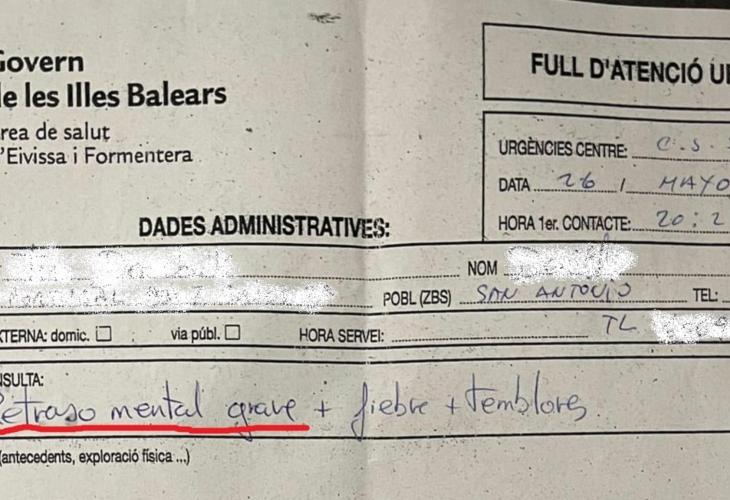 Govern
de les Illes Balears
rea de salut
'Eivissa i Formentera
FULL D'ATENCIÓ U
URGÈNCIES CENTRE: C.S.
DATA 26 / MAYO
HORA 1er. CONTACTE: 20:2
DADES ADMINISTRATIVES:
NOM
POBL (ZBS) SAN ANTONIO TEL:
XTERNA: domic. via públ. HORA SERVEI: TL
NSULTA:
Retraso mental grave + fiebre + temblores
(antecedents, exploració física ...)